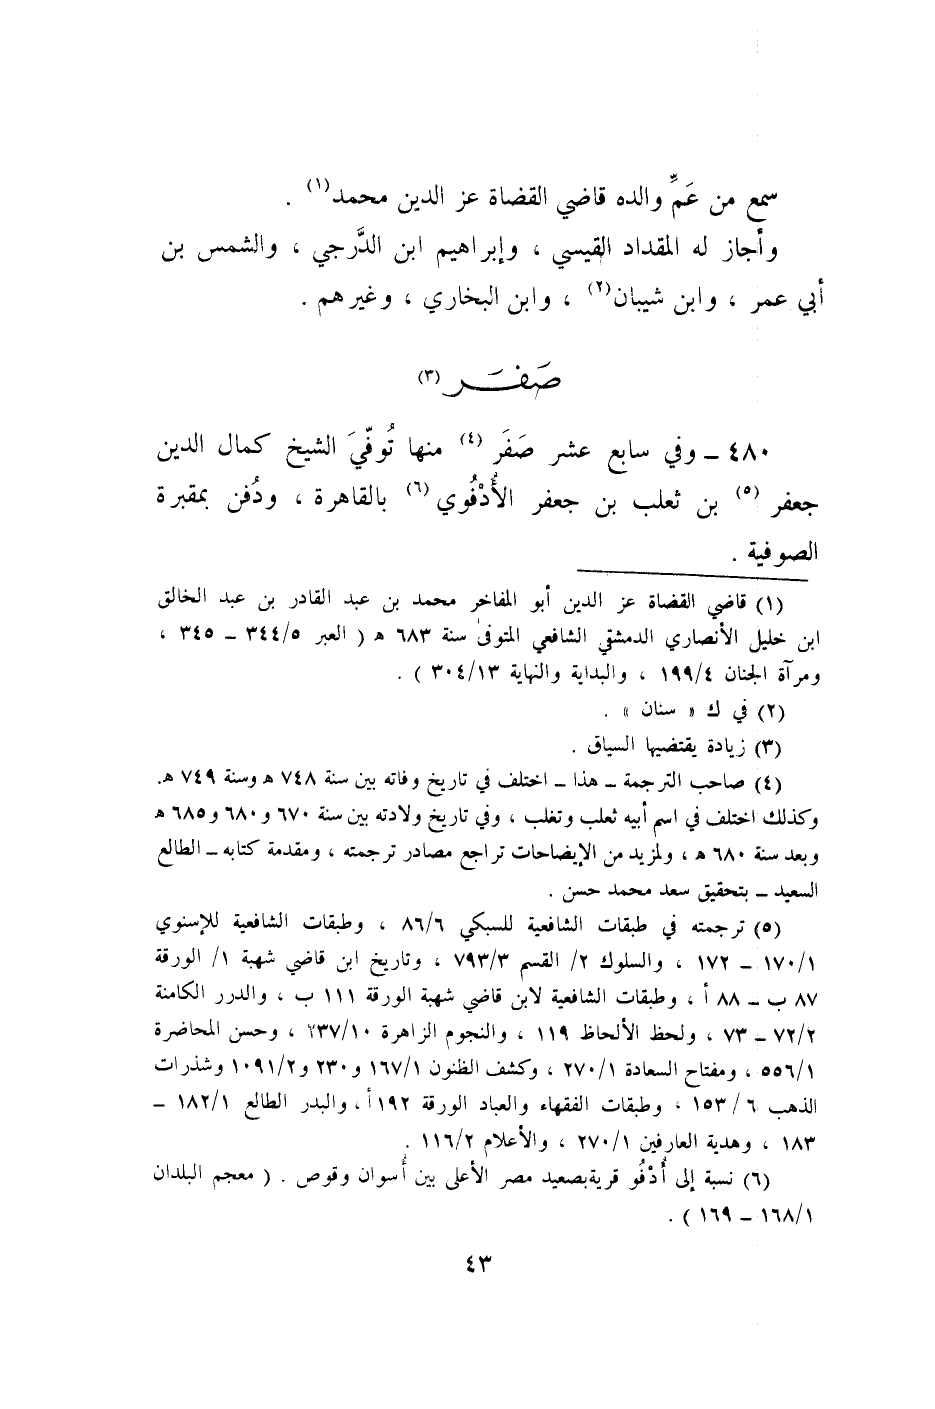 سمع من عَمِّ والده قاضي القضاة عز الدين محمد(١) .
وأجاز له المقداد القيسي ، وإبراهيم ابن الدَّرجي ، والشمس بن
أبي عمر ، وابن شيبان(٢) ، وابن البخاري ، وغيرهم .
صَفَـر (٣)
٤٨٠ ـ وفي سابع عشر صَفَر (٤) منها تُوفّيَ الشيخ كمال الدين
جعفر (٥) بن ثعلب بن جعفر الأُدْفُوي (٦) بالقاهرة ، ودُفن بمقبرة
الصوفية .
(١) قاضي القضاة عز الدين أبو المفاخر محمد بن عبد القادر بن عبد الخالق
ابن خليل الأنصاري الدمشقي الشافعي المتوفى سنة ٦٨٣ هـ ( العبر ٣٤٤/٥ ـ ٣٤٥ ،
ومرآة الجنان ١٩٩/٤ ، والبداية والنهاية ٣٠٤/١٣ ) .
(٢) في ك « سنان » .
(٣) زيادة يقتضيها السياق .
(٤) صاحب الترجمة ـ هذا ـ اختلف في تاريخ وفاته بين سنة ٧٤٨ هـ وسنة ٧٤٩ هـ.
وكذلك اختلف في اسم أبيه ثعلب وتغلب ، وفي تاريخ ولادته بين سنة ٦٧٠ و ٦٨٠ و ٦٨٥ هـ
وبعد سنة ٦٨٠ هـ ، ولمزيد من الإيضاحات تراجع مصادر ترجمته ، ومقدمة كتابه ـ الطالع
السعيد ـ بتحقيق سعد محمد حسن .
(٥) ترجمته في طبقات الشافعية للسبكي ٨٦/٦ ، وطبقات الشافعية للإسنوي
١٧٠/١ ـ ١٧٢ ، والسلوك ٢/ القسم ٧٩٣/٣ ، وتاريخ ابن قاضي شهبة ١/ الورقة
٨٧ ب ـ ٨٨ أ ، وطبقات الشافعية لابن قاضي شهبة الورقة ١١١ ب ، والدرر الكامنة
٧٢/٢ ـ ٧٣ ، ولحظ الألحاظ ١١٩ ، والنجوم الزاهرة ٢٣٧/١٠ ، وحسن المحاضرة
٥٥٦/١ ، ومفتاح السعادة ٢٧٠/١ ، وكشف الظنون ١٦٧/١ و٢٣٠ و١٠٩١/٢ وشذرات
الذهب ٦ / ١٥٣ ، وطبقات الفقهاء والعباد الورقة ١٩٢أ ، والبدر الطالع ١٨٢/١ ـ
١٨٣ ، وهدية العارفين ٢٧٠/١ ، والأعلام ١١٦/٢ .
(٦) نسبة إلى أُدْفُو قرية بصعيد مصر الأعلى بين أُسوان وقوص . ( معجم البلدان
١٦٨/١ ـ ١٦٩ ) .
٤٣